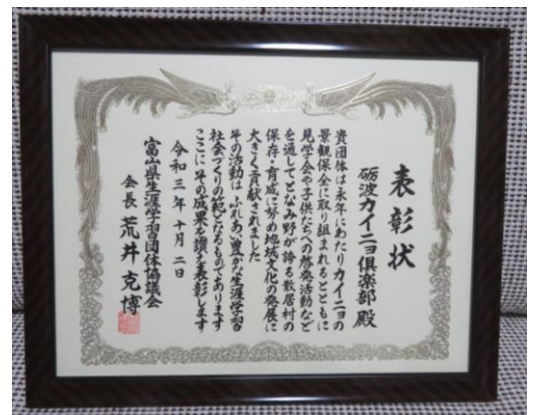 表彰状
砺波カイニョ倶楽部 殿
貴団体は永年にわたりカイニョの
景観保全に取り組まれるとともに
見学会や子供たちへの啓発活動など
を通してとなみ野が誇る散居村の
保存・育成に努め地域文化の発展に
大きく貢献されました
その活動は ふれあい豊かな生涯学習
社会づくりの範となるものであります
ここに その成果を讃え表彰します
令和三年十月二日
富山県生涯学習団体協議会
会長 荒井 克博